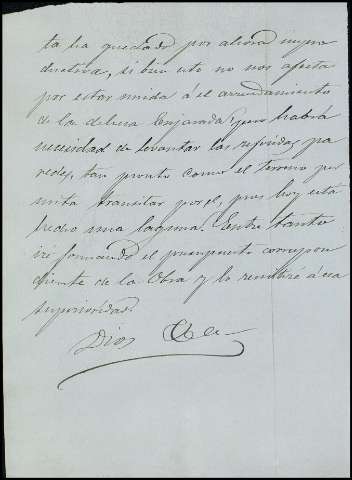 ta ha quedado por ahora impro
ductiva, si bien esto no nos afecta
por estar unida á el arrendamiento
de la dehesa Enjarada; pero habrá
necesidad de levantar las referidas pa
redes, tan pronto como el terreno per
mita transitar por el, pues hoy está
hecho una laguna. Entre tanto
iré formando el presupuesto correspon
diente de la Obra y lo remitiré á esa
superioridad.
Dios &a